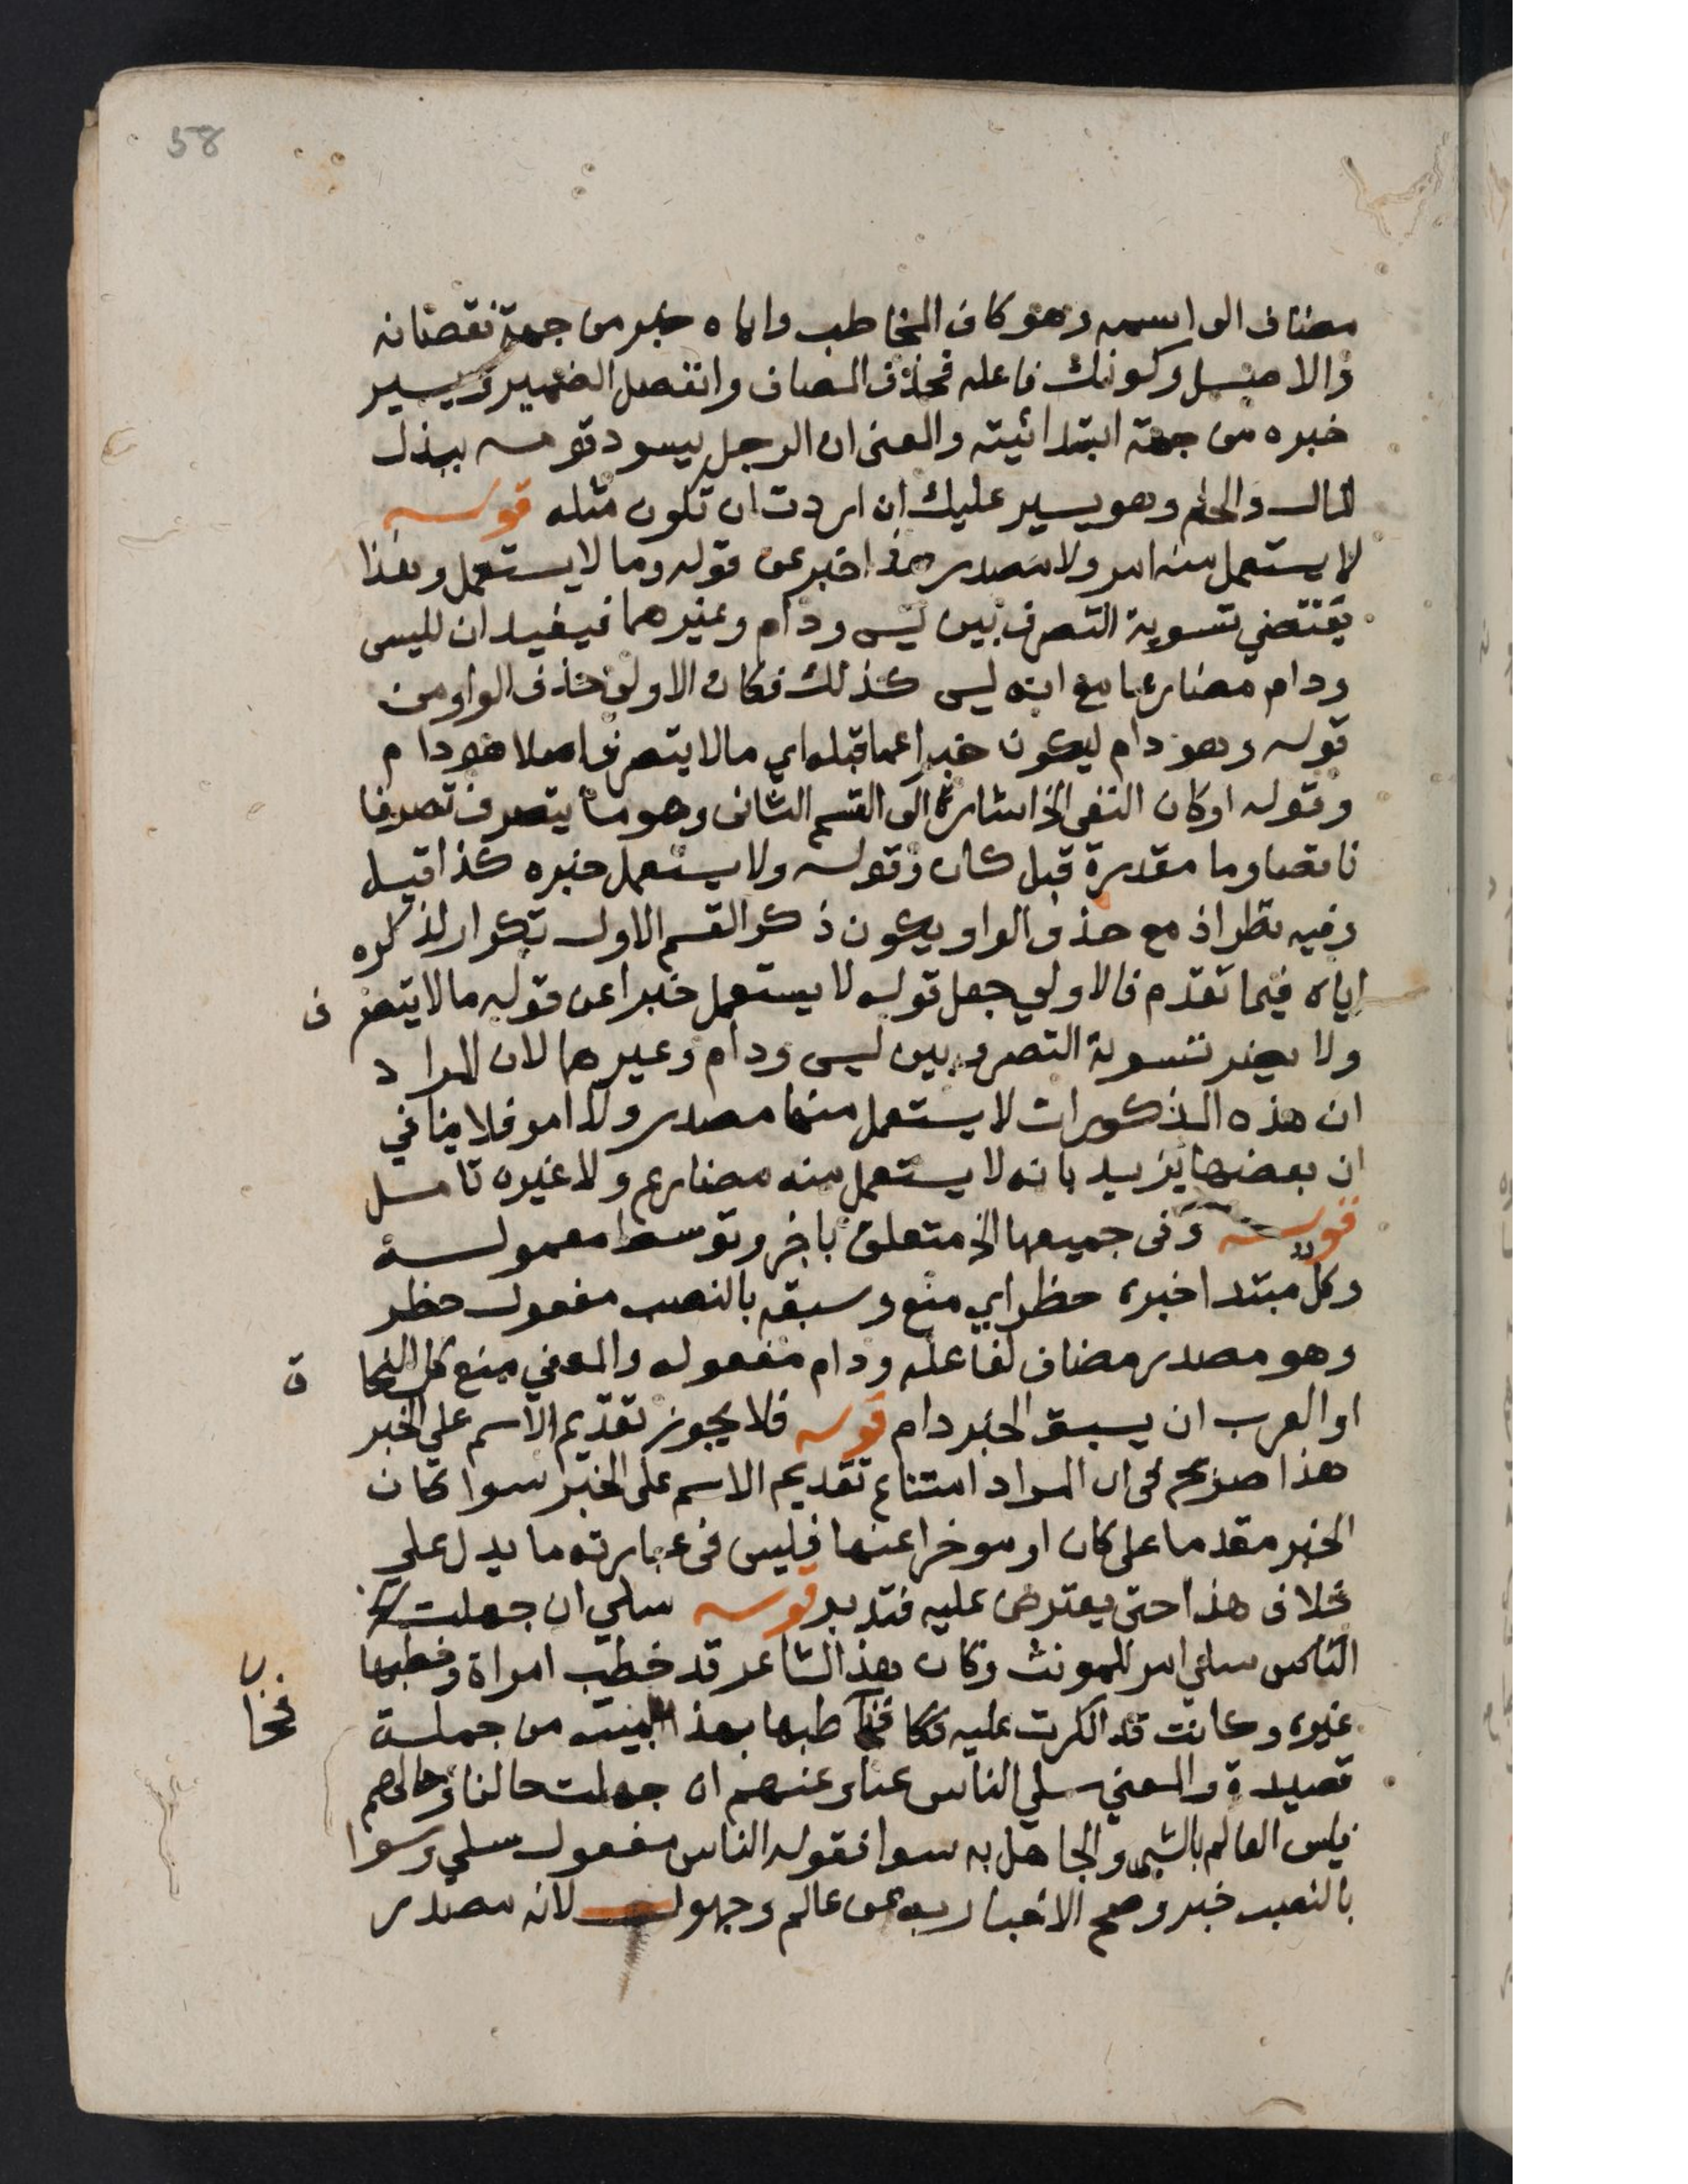 58
مضاف الى اسمه وهو كاف المخاطب واياه خبر من جهة نقصانه
والاصل وكونك فاعله فحذف المضاف وانفصل الضمير ويسير
خبره من جهة ابتدائيته والمعنى ان الرجل يسود قومه ببذل
المال والحلم وهو يسير عليك ان اردت ان تكون مثله قوله
لا يستعمل منه امر ولا مصدر هذا خبر عن قوله وما لا يستعمل وهذا
يقتضي تسوية التصرف بين ليس ودام وغيرهما فيفيد ان لليس
ودام مضارعا مع انه ليس كذلك فكان الاولى حذف الواو من
قوله وهو دام ليكون خبرا عما قبله اي مالا يتصرف اصلا هو دام
وقوله او كان النفي الخ اشارة الى القسم الثانى وهو ما يتصرف تصرفا
ناقصا وما مقدرة قبل كان وقوله ولا يستعمل خبره كذا قيل
وفيه نظر اذ مع حذف الواو يكون ذكر القسم الاول تكرار لذكره
اياه فيما تقدم فالاولي جعل قوله لا يستعمل خبرا عن قوله مالا يتصرف
ولا يضر تسوية التصرف بين ليس ودام وغيرهما لان المراد
ان هذه المذكورات لا يستعمل منها مصدر ولا امر فلا ينافي
ان بعضها يزيد بانه لا يستعمل منه مضارع ولا غيره تامل
قوله وفى جميعها الخ متعلق باخر وتوسط معموله
وكل مبتدا خبره حظر اي منع وسبقه بالنصب مفعول حظر
وهو مصدر مضاف لفاعله ودام مفعوله والمعني منع كل النحاة
او العرب ان يسبق الخبر دام قوله فلا يجوز تقديم الاسم علي الخبر
هذا صريح فى ان المراد امتناع تقديم الاسم على الخبر سوا كان
الخبر مقدما على كان او موخرا عنها فليس فى عبارته ما يدل علي
خلاف هذا حتى يعترض عليه فتدبر قوله سلي ان جهلت
الناس سلي امر للمونث وكان هذا الشاعر قد خطب امراة وخطبها
غيره وكانت قد انكرت عليه فخاطبها بهذا البيت من جملة
فخا
قصيدة والمعني سلي الناس عنا وعنهم ان جهلت حالنا وحالهم
فليس العالم بالشى والجاهل به سوا فقوله الناس مفعول سلي وسوا
بالنصب خبر وصح الاخبار به عن عالم وجهول لانه مصدر